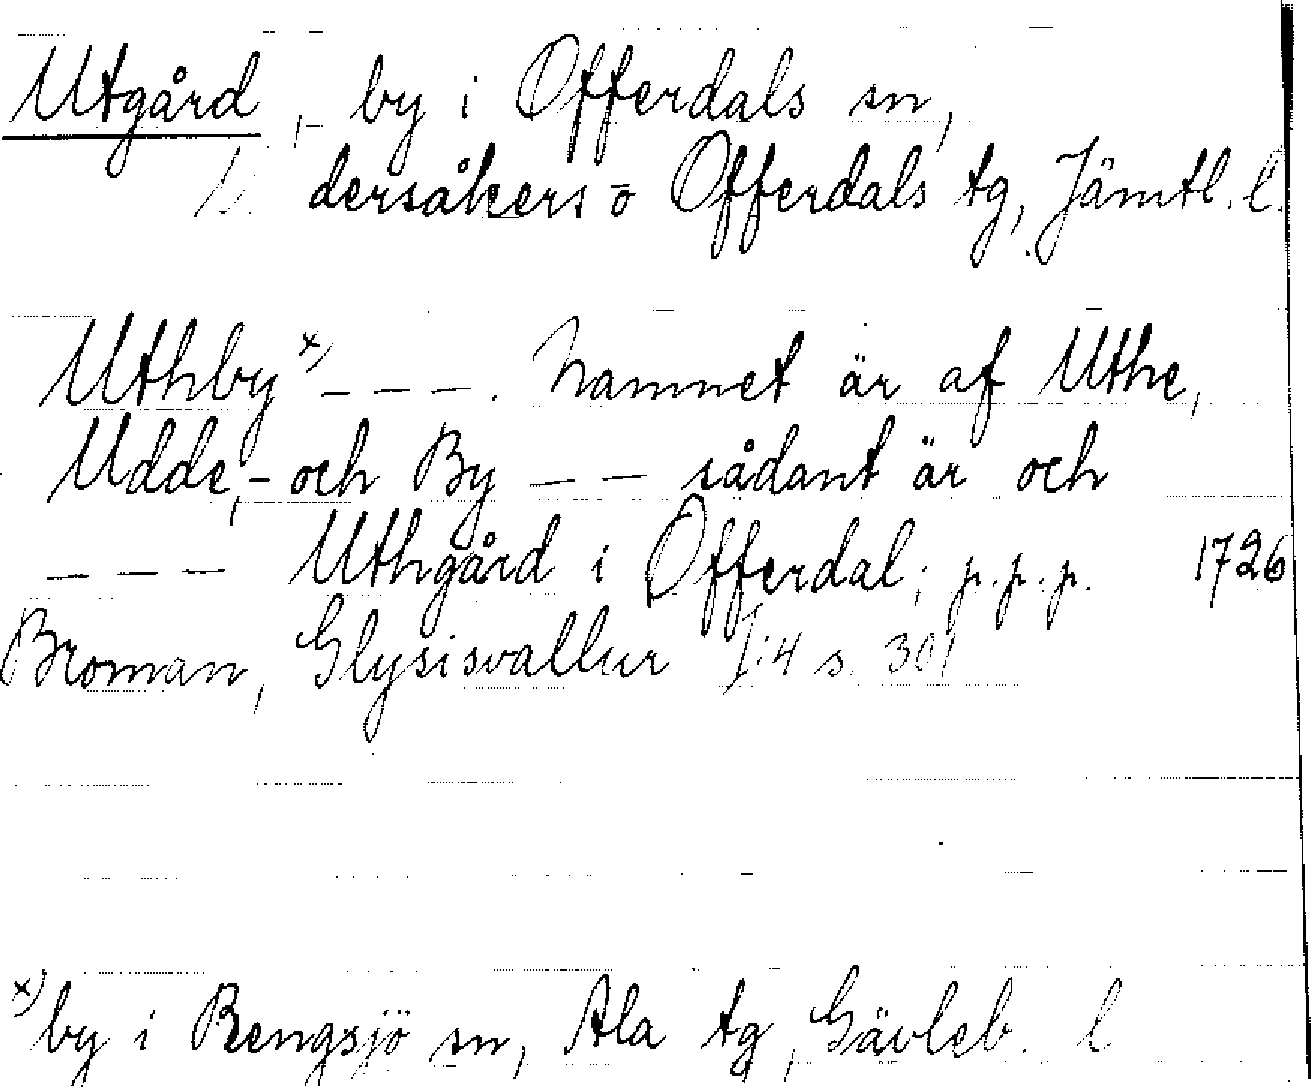 Utgård, by i Offerdals sn,
dersåkers o Offerdals tg, Jämtl. l.
Uthby x) – – –. Namnet är af Uthe,
Udde, – och By – – sådant är och
– – – Uthgård i Offerdal; p.p.p. 1726
Broman, Glysisvallur I:4 s. 301
x) by i Rengsjö sn, Ala tg, Gävleb. l